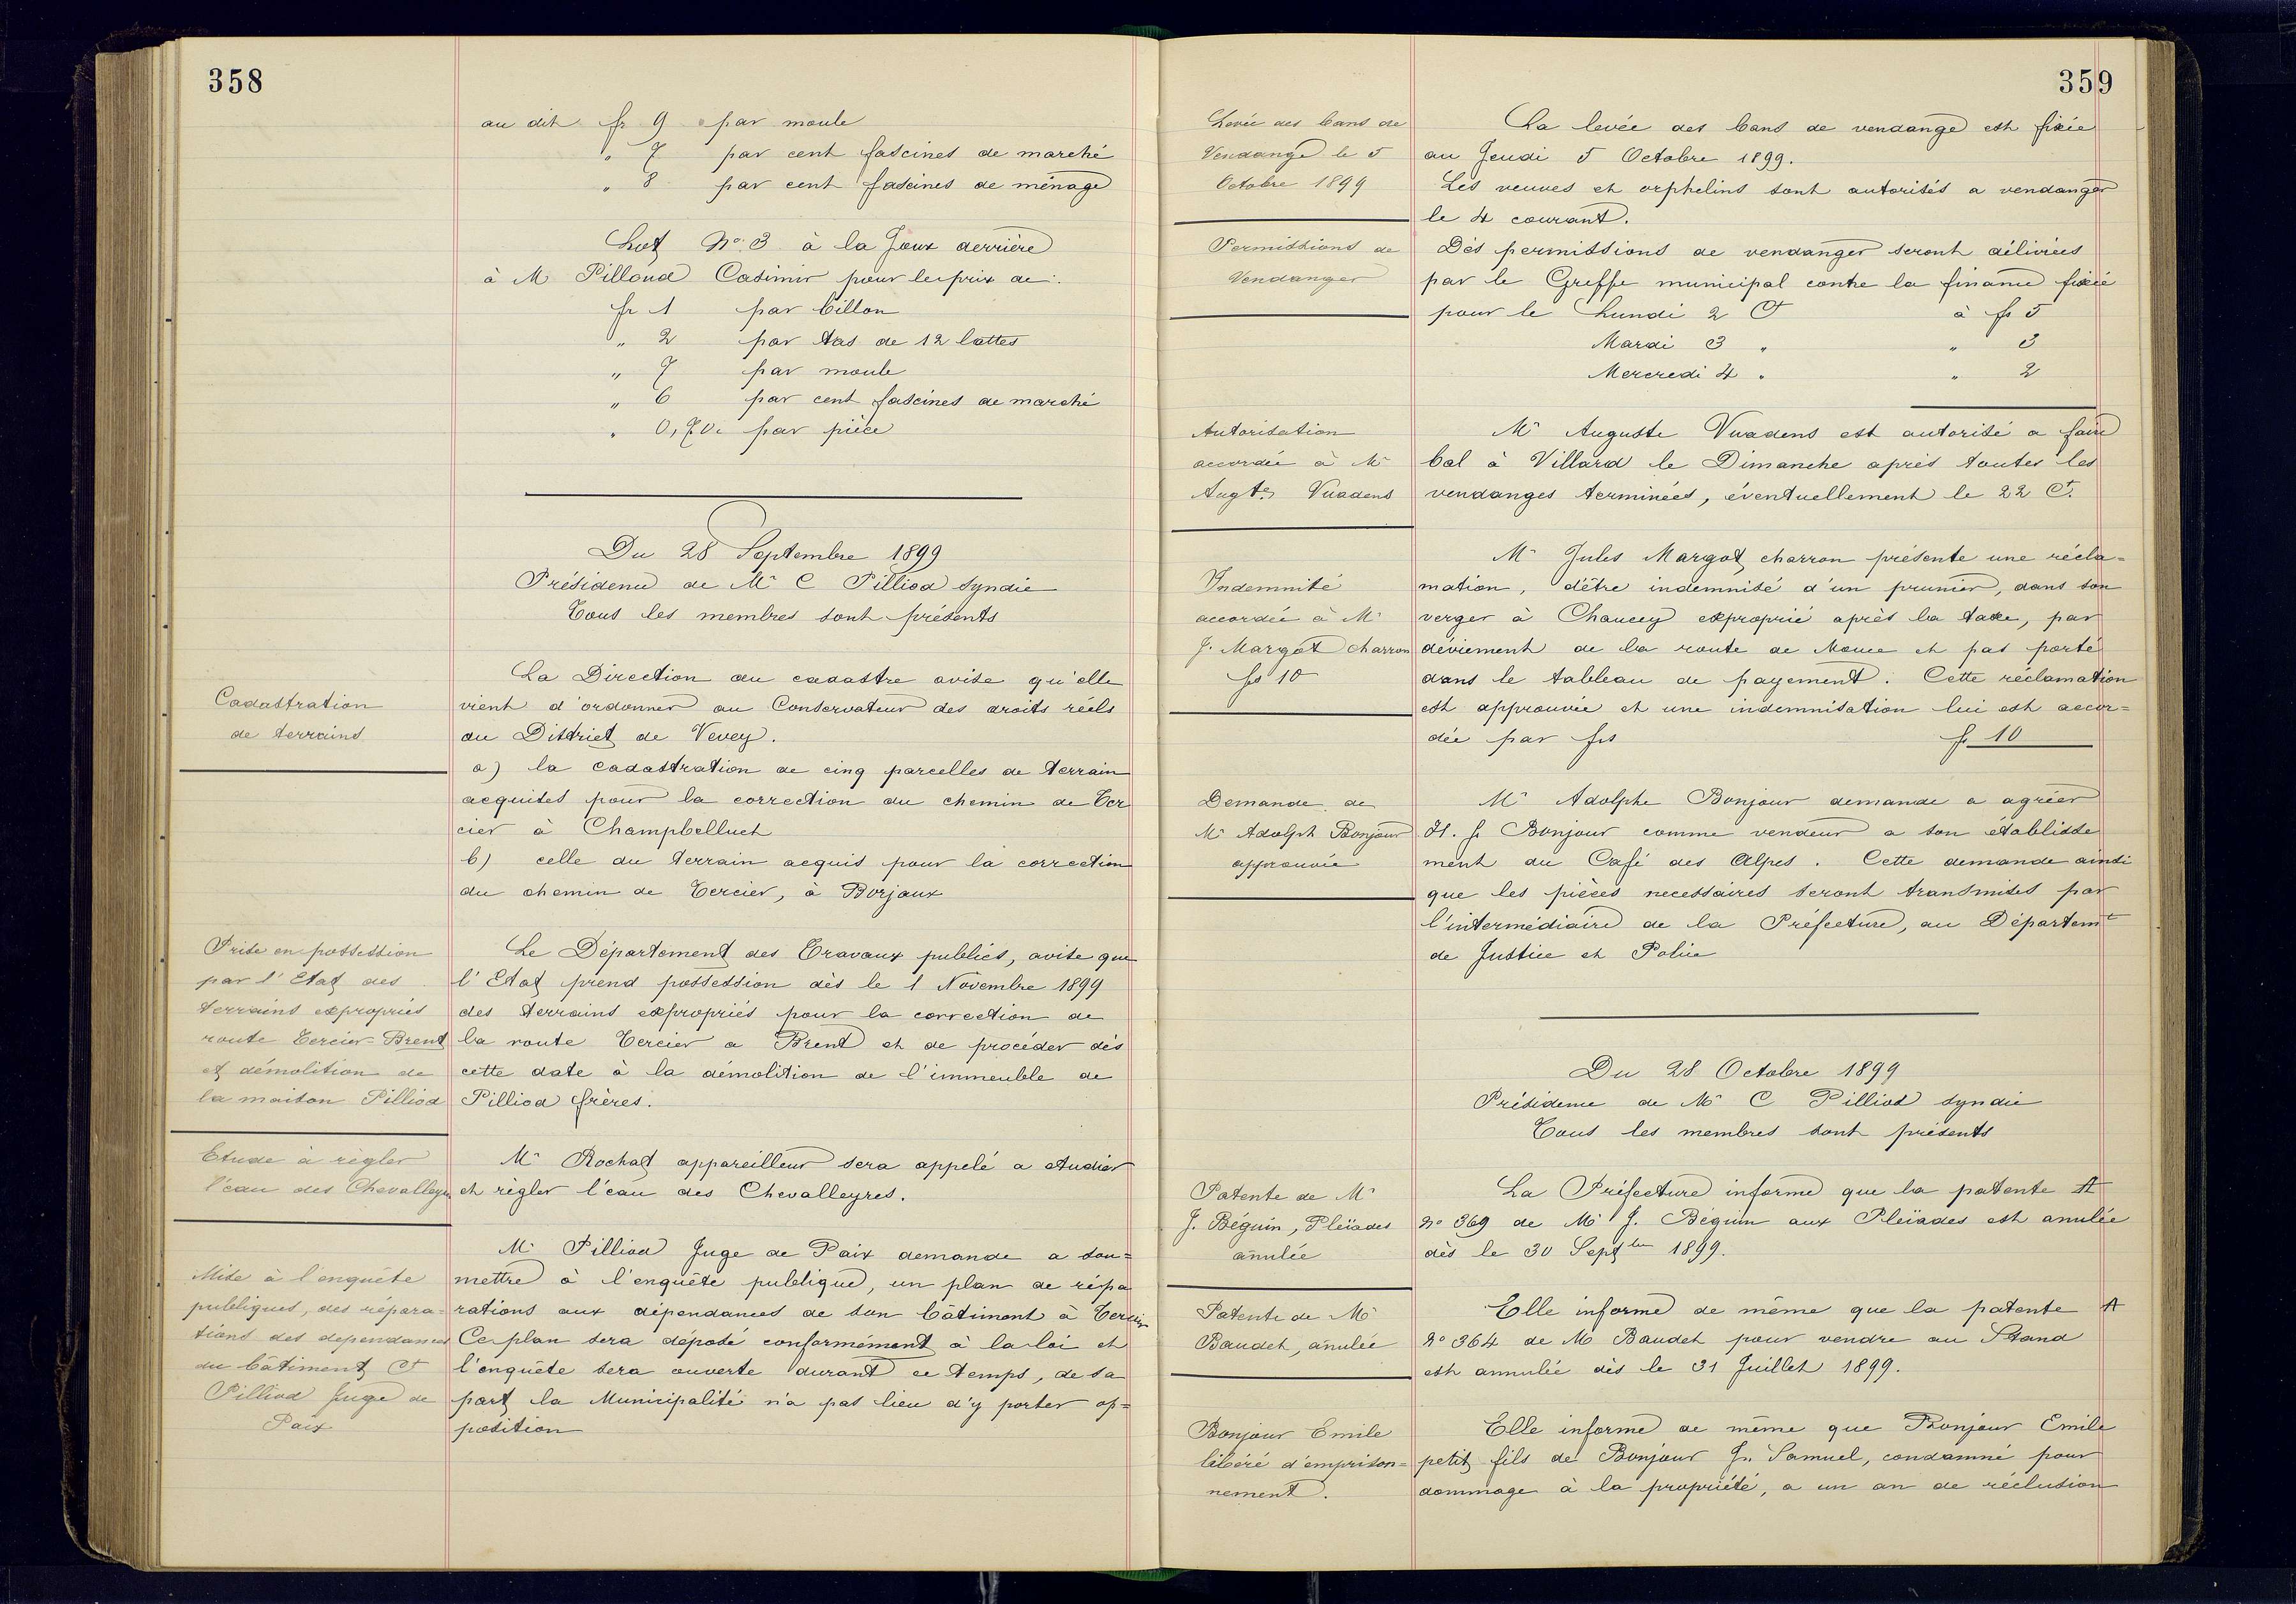 358
au dit fr 9 par moule
" 7 par cent fascines de marché
" 8 par cent fascines de ménage
Lot No. 3 à la Joux derrière
à M Pilloud Casimir pour le prix de :
fr 1 par billon
" 2 par tas de 12 lattes
" 7 par moule
" 6 par cent fascines de marché
" 0,70. par pièce
Du 28 Septembre 1899
Présidence de Mr C Pilliod syndic
Tous les membres sont présents
Cadastration
de terrains
La Direction du cadastre avise qu'elle
vient d'ordonner au Conservateur des droits réels
du District de Vevey.
a) la cadastration de cinq parcelles de terrain
acquises pour la correction du chemin de Ter
cier à Champbelluet
b) celle du terrain acquis pour la correction
du chemin de Tercier, à Borjaux
Prise en possession
par l'Etat des
terrains expropriés
route Tercier-Brent
et démolition de
la maison Pilliod
Le Département des Travaux publics, avise que
l'Etat prend possession dès le 1 Novembre 1899
des terrains expropriés pour la correction de
la route Tercier a Brent et de procéder dès
cette date à la démolition de l'immeuble de
Pilliod frères.
Etude à règler
l'eau des Chevalleyres
Mr Rochat appareilleur sera appelé a etudier
et règler l'eau des Chevalleyres.
Mise à l'enquête
publiques, des répara-
tions des dependances
du bâtiment Ct
Pilliod Juge de
Paix
Mr Pilliod Juge de Paix demande a sou=
mettre à l'enquête publique, un plan de répa
rations aux dépendances de son bâtiment à Tercier
Ce plan sera déposé conformément à la loi et
l'enquête sera ouverte durant ce temps, de sa
part la Municipalité n'a pas lieu d'y porter op=
position
359
Levée des bans de
Vendange le 5
Octobre 1899
La levée des bans de vendange est fixée
au Jeudi 5 Octobre 1899.
Les veuves et orphelins sont autorisés a vendanger
le 4 courant.
Permissions de
Vendanger
Des permissions de vendanger seront délivrées
par le Greffe municipal contre la finance fixée
pour le Lundi 2 Ct à fr 5
Mardi 3 " " 3
Mercredi 4 " " 2
Autorisation
accordée à Mr
Augte Vuadens
Mr Auguste Vuadens est autorisé a faire
bal à Villard le Dimanche après toutes les
vendanges terminées, éventuellement le 22 Ct.
Indemnité
accordée à Mr
J. Margot charron
frs 10
Mr Jules Margot charron présente une récla=
mation, d'être indemnisé d'un prunier, dans son
verger à Chaucey exproprié après la taxe, par
déviement de la route de et pas porté
dans le tableau de payement. Cette réclamation
est approuvée et une indemnisation lui est accor=
dée par frs fr 10
Demande de
Mr Adolph Bonjour
approuvée
Mr Adolphe Bonjour demande a agréer
H. fs Bonjour comme vendeur a son établisse
ment du Café des Alpes. Cette demande ainsi
que les pièces necessaires seront transmises par
l'intermédiaire de la Préfecture, au Départemt
de Justice et Police
Du 28 Octobre 1899
Présidence de Mr C Pilliod syndic
Tous les membres sont présents
Patente de Mr
J. Béguin, Pleïades
annulée
La Préfecture informe que la patente A
No 369 de Mr J. Béguin aux Pleïades est anulée
dès le 30 Septbre 1899.
Patente de Mr
Baudet, anulée
Elle informe de même que la patente A
No 364 de Mr Baudet pour vendre au Stand
est annulée dès le 31 Juillet 1899.
Bonjour Emile
libéré d'emprison=
nement.
Elle informe de même que Bonjour Emile
petit fils de Bonjour Jn Samuel, condamné pour
dommage à la propriété, a un an de réclusion